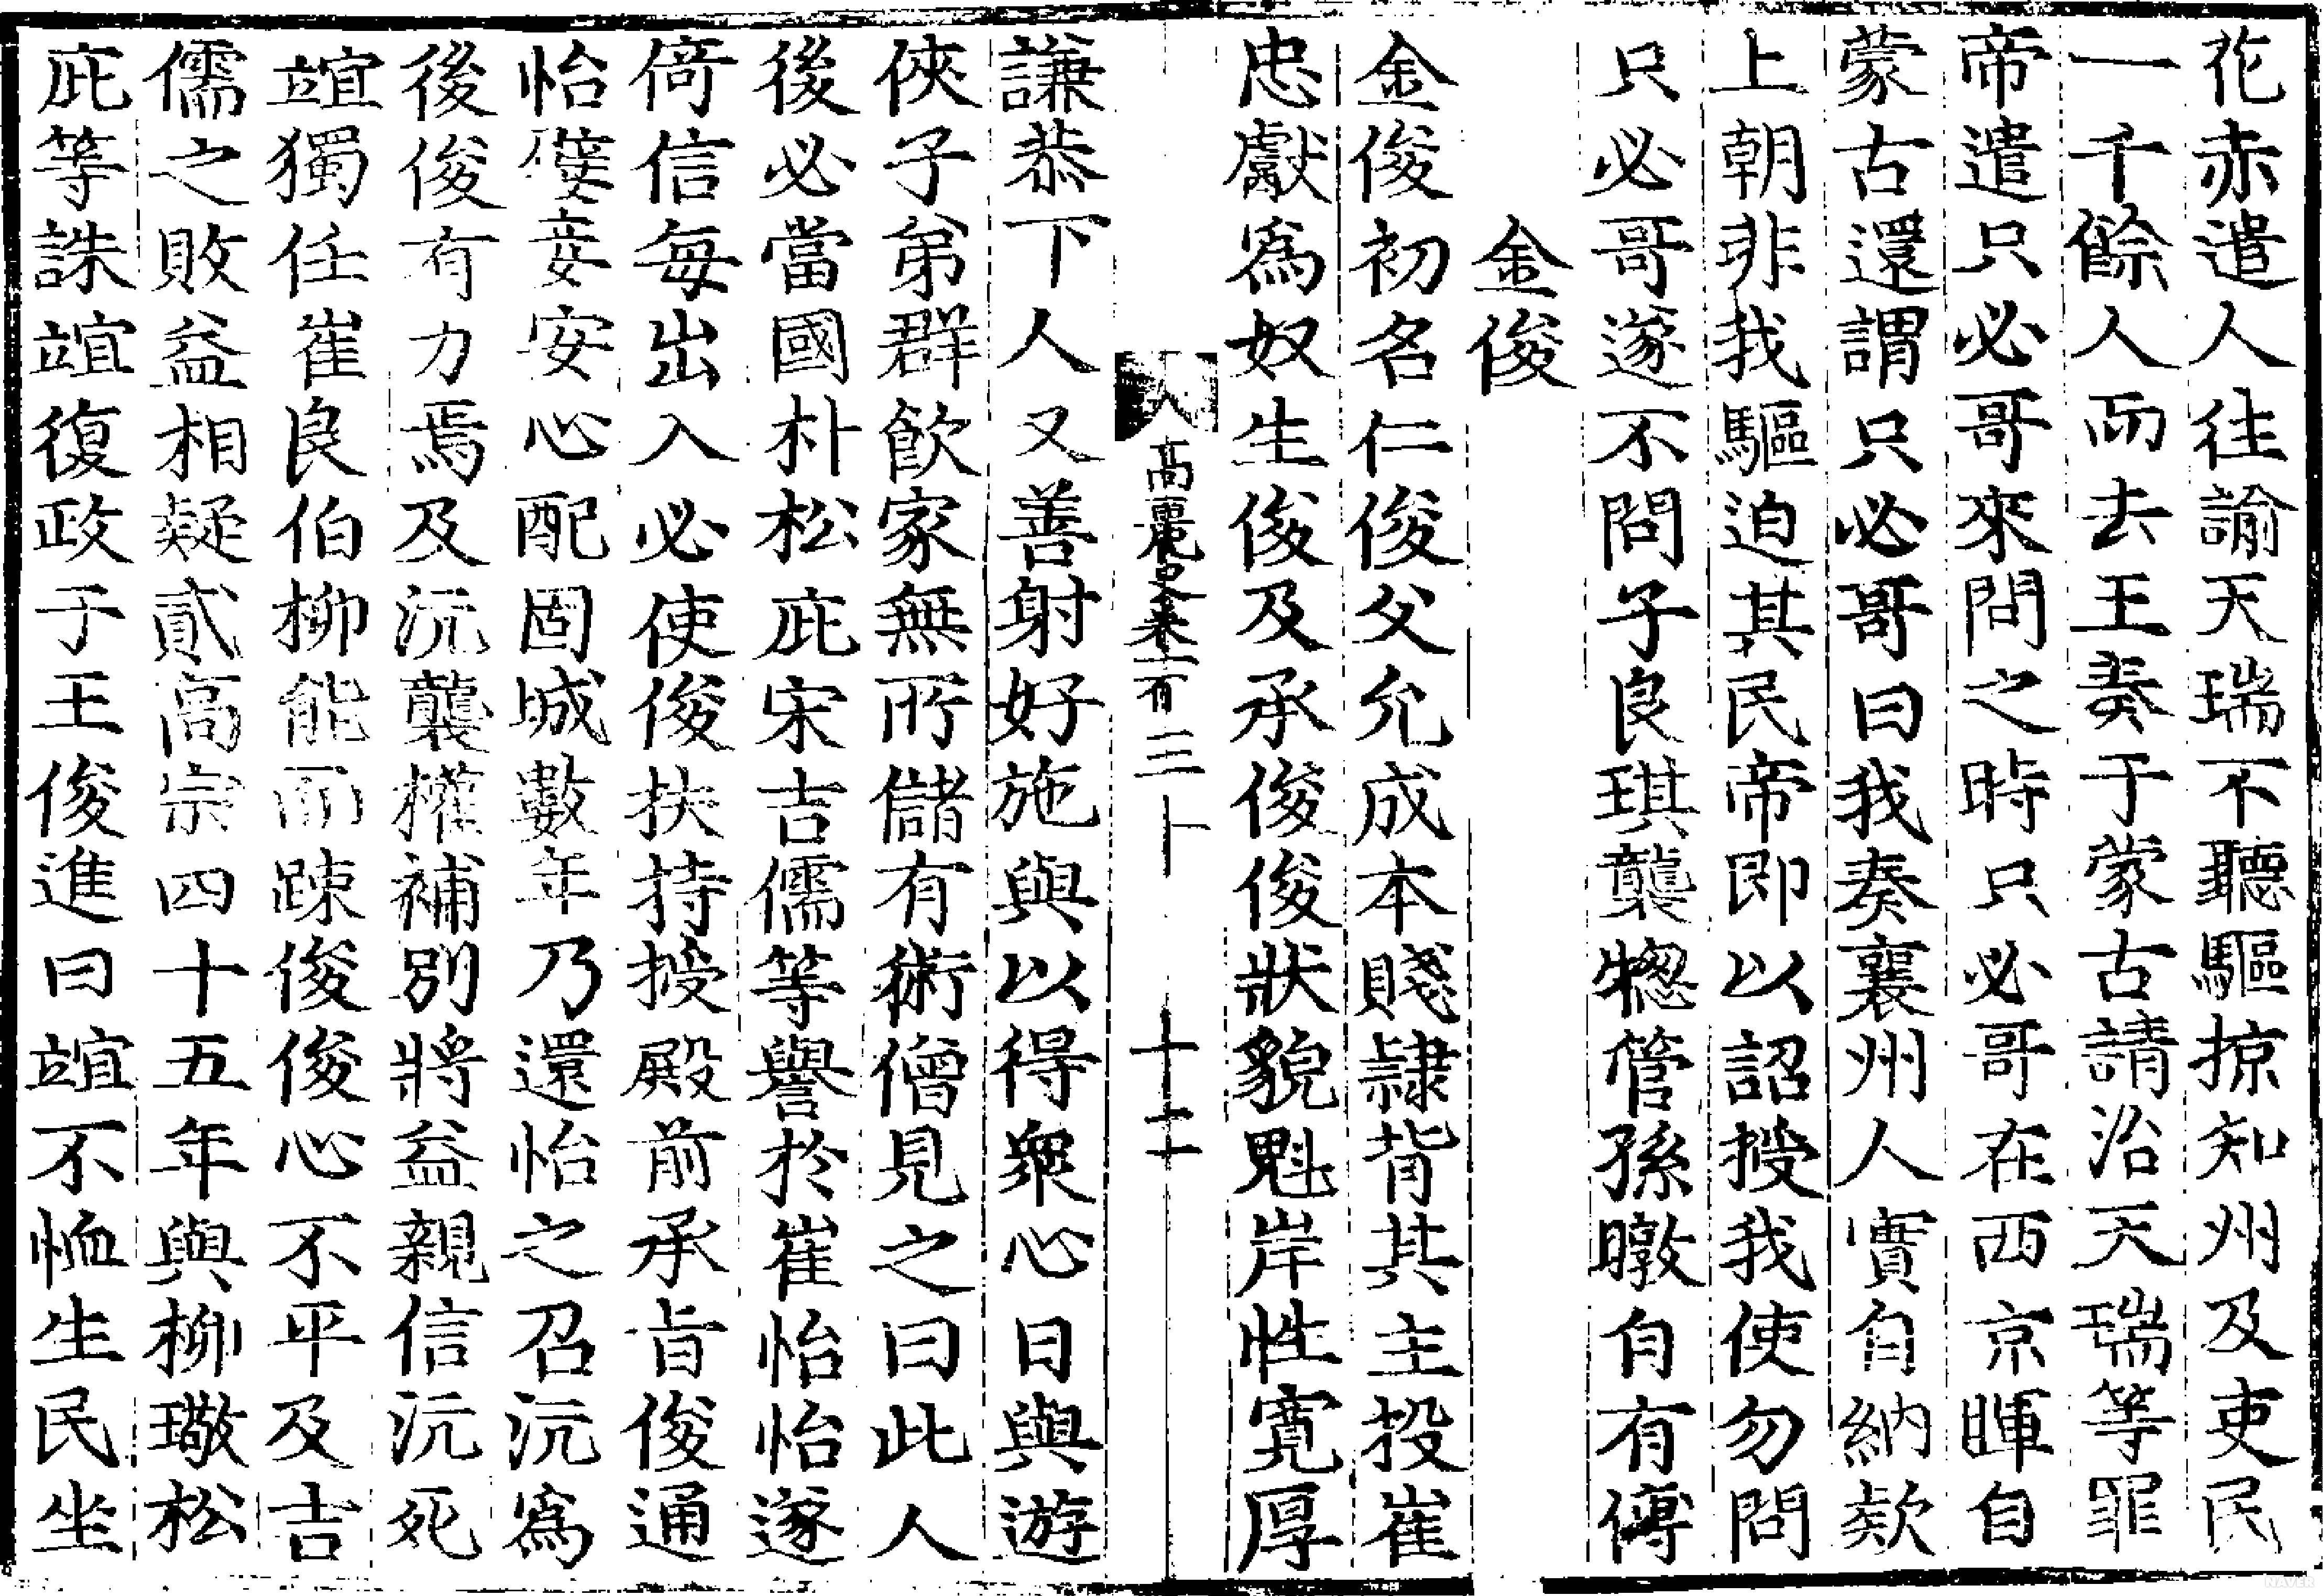 花赤遣人徃諭天瑞不聽驅掠知州及吏民
一千餘人而去王奏于蒙古請治天瑞等罪
帝遣只必哥來問之時只必哥在西京暉自
蒙古還謂只必哥曰我奏襄州人實自納欵
上朝非我驅迫其民帝即以詔授我使勿問
只必哥遂不問子良琪襲摠管孫暾自有傳
金俊
金俊初名仁俊父允成本賤隷背其主投崔
忠獻爲奴生俊及承俊俊狀貌魁岸性寛厚
高麗史卷一百三十
十二
謙恭下人又善射好施與以得衆心日與游
俠子弟群飮家無所儲有術僧見之曰此人
後必當國朴松庇宋吉儒等譽於崔怡怡遂
倚信每出入必使俊扶持授殿前承旨俊通
怡嬖妾安心配固城數年乃還怡之召沆爲
後俊有力焉及沆襲權補別將益親信沆死
竩獨任崔良伯柳能而踈俊俊心不平及吉
儒之敗益相疑貳高宗四十五年與柳璥松
庇等誅竩復政于王俊進曰竩不恤生民坐